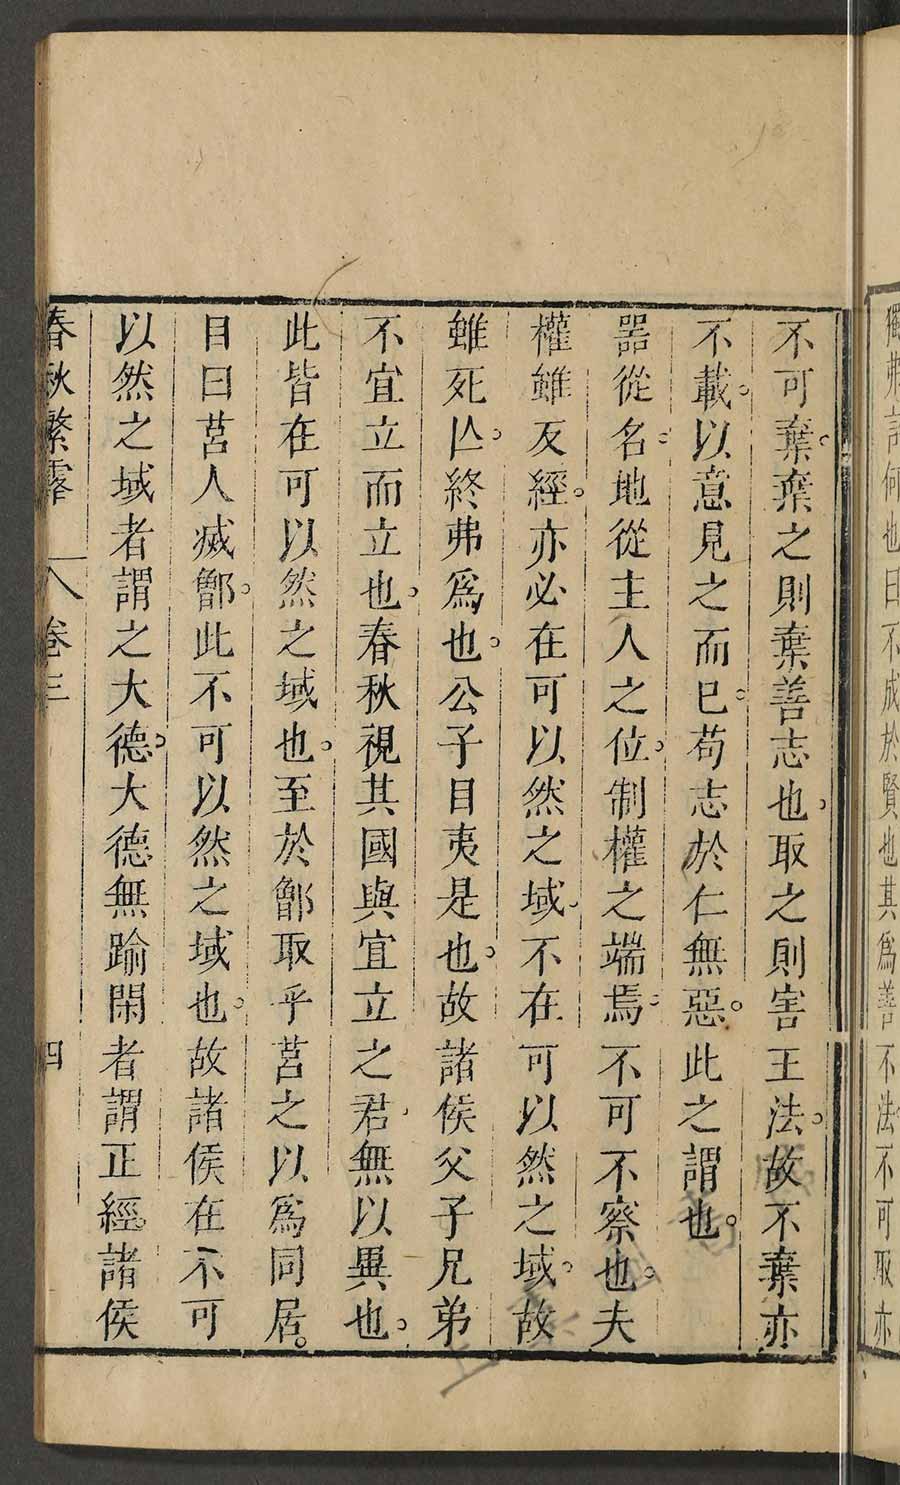 獨弗詳何也曰不成於賢也其爲善不法不可取亦
不可棄棄之則棄善志也取之則害王法故不棄亦
不載以意見之而已苟志於仁無惡此之謂也
器從名地從主人之位制權之端焉不可不察也夫
權雖反經亦必在可以然之域不在可以然之域故
雖死亾終弗爲也公子目夷是也故諸侯父子兄弟
不宜立而立也春秋視其國與宜立之君無以異也
此皆在可以然之域也至於鄫取乎莒之以爲同居
目曰莒人滅鄫此不可以然之域也故諸侯在不可
以然之域者謂之大德大德無踰閑者謂正經諸侯
春秋繁露 卷三 四